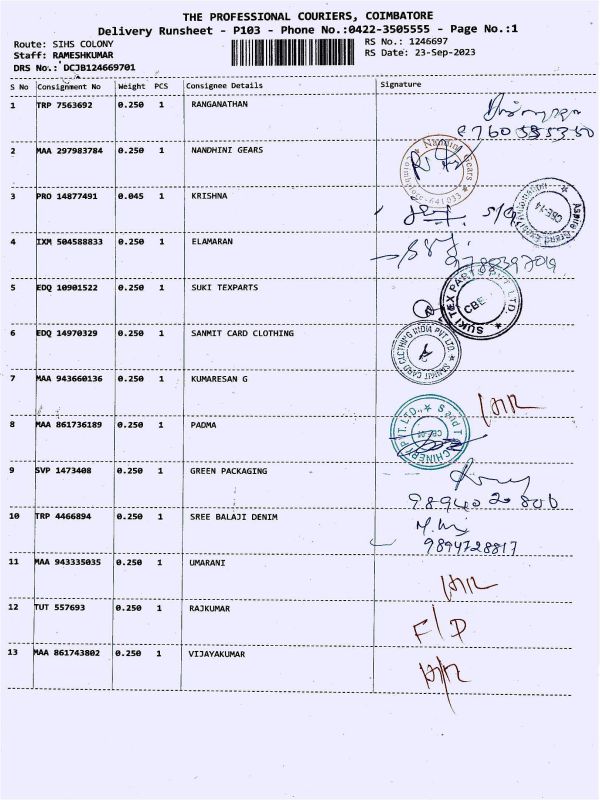 THE PROFESSIONAL COURIERS, COIMBATORE
Delivery Runsheet - P103 - Phone No.:0422-3505555 - Page No.:1
Route: SIHS COLONY RS No.: 1246697
Staff: RAMESHKUMAR RS Date: 23-Sep-2023
DRS No.: DCJB124669701
S No Consignment No Weight PCS Consignee Details Signature
1 TRP 7563692 0.250 1 RANGANATHAN
9760595350
2 MAA 297983784 0.250 1 NANDHINI GEARS
Nandini Gears
Coimbatore-641033
3 PRO 14877491 0.045 1 KRISHNA
CBE-14
4 IXM 504588833 0.250 1 ELAMARAN
9788397019
5 EDQ 10901522 0.250 1 SUKI TEXPARTS
SUKI TEX PARTS PVT. LTD.
CBE
6 EDQ 14970329 0.250 1 SANMIT CARD CLOTHING
SANMIT CARD CLOTHING INDIA PVT LTD.
7 MAA 943660136 0.250 1 KUMARESAN G
8 MAA 861736189 0.250 1 PADMA
9 SVP 1473408 0.250 1 GREEN PACKAGING
9894020806
10 TRP 4466894 0.250 1 SREE BALAJI DENIM
9894728817
11 MAA 943335035 0.250 1 UMARANI
12 TUT 557693 0.250 1 RAJKUMAR
F/D
13 MAA 861743802 0.250 1 VIJAYAKUMAR